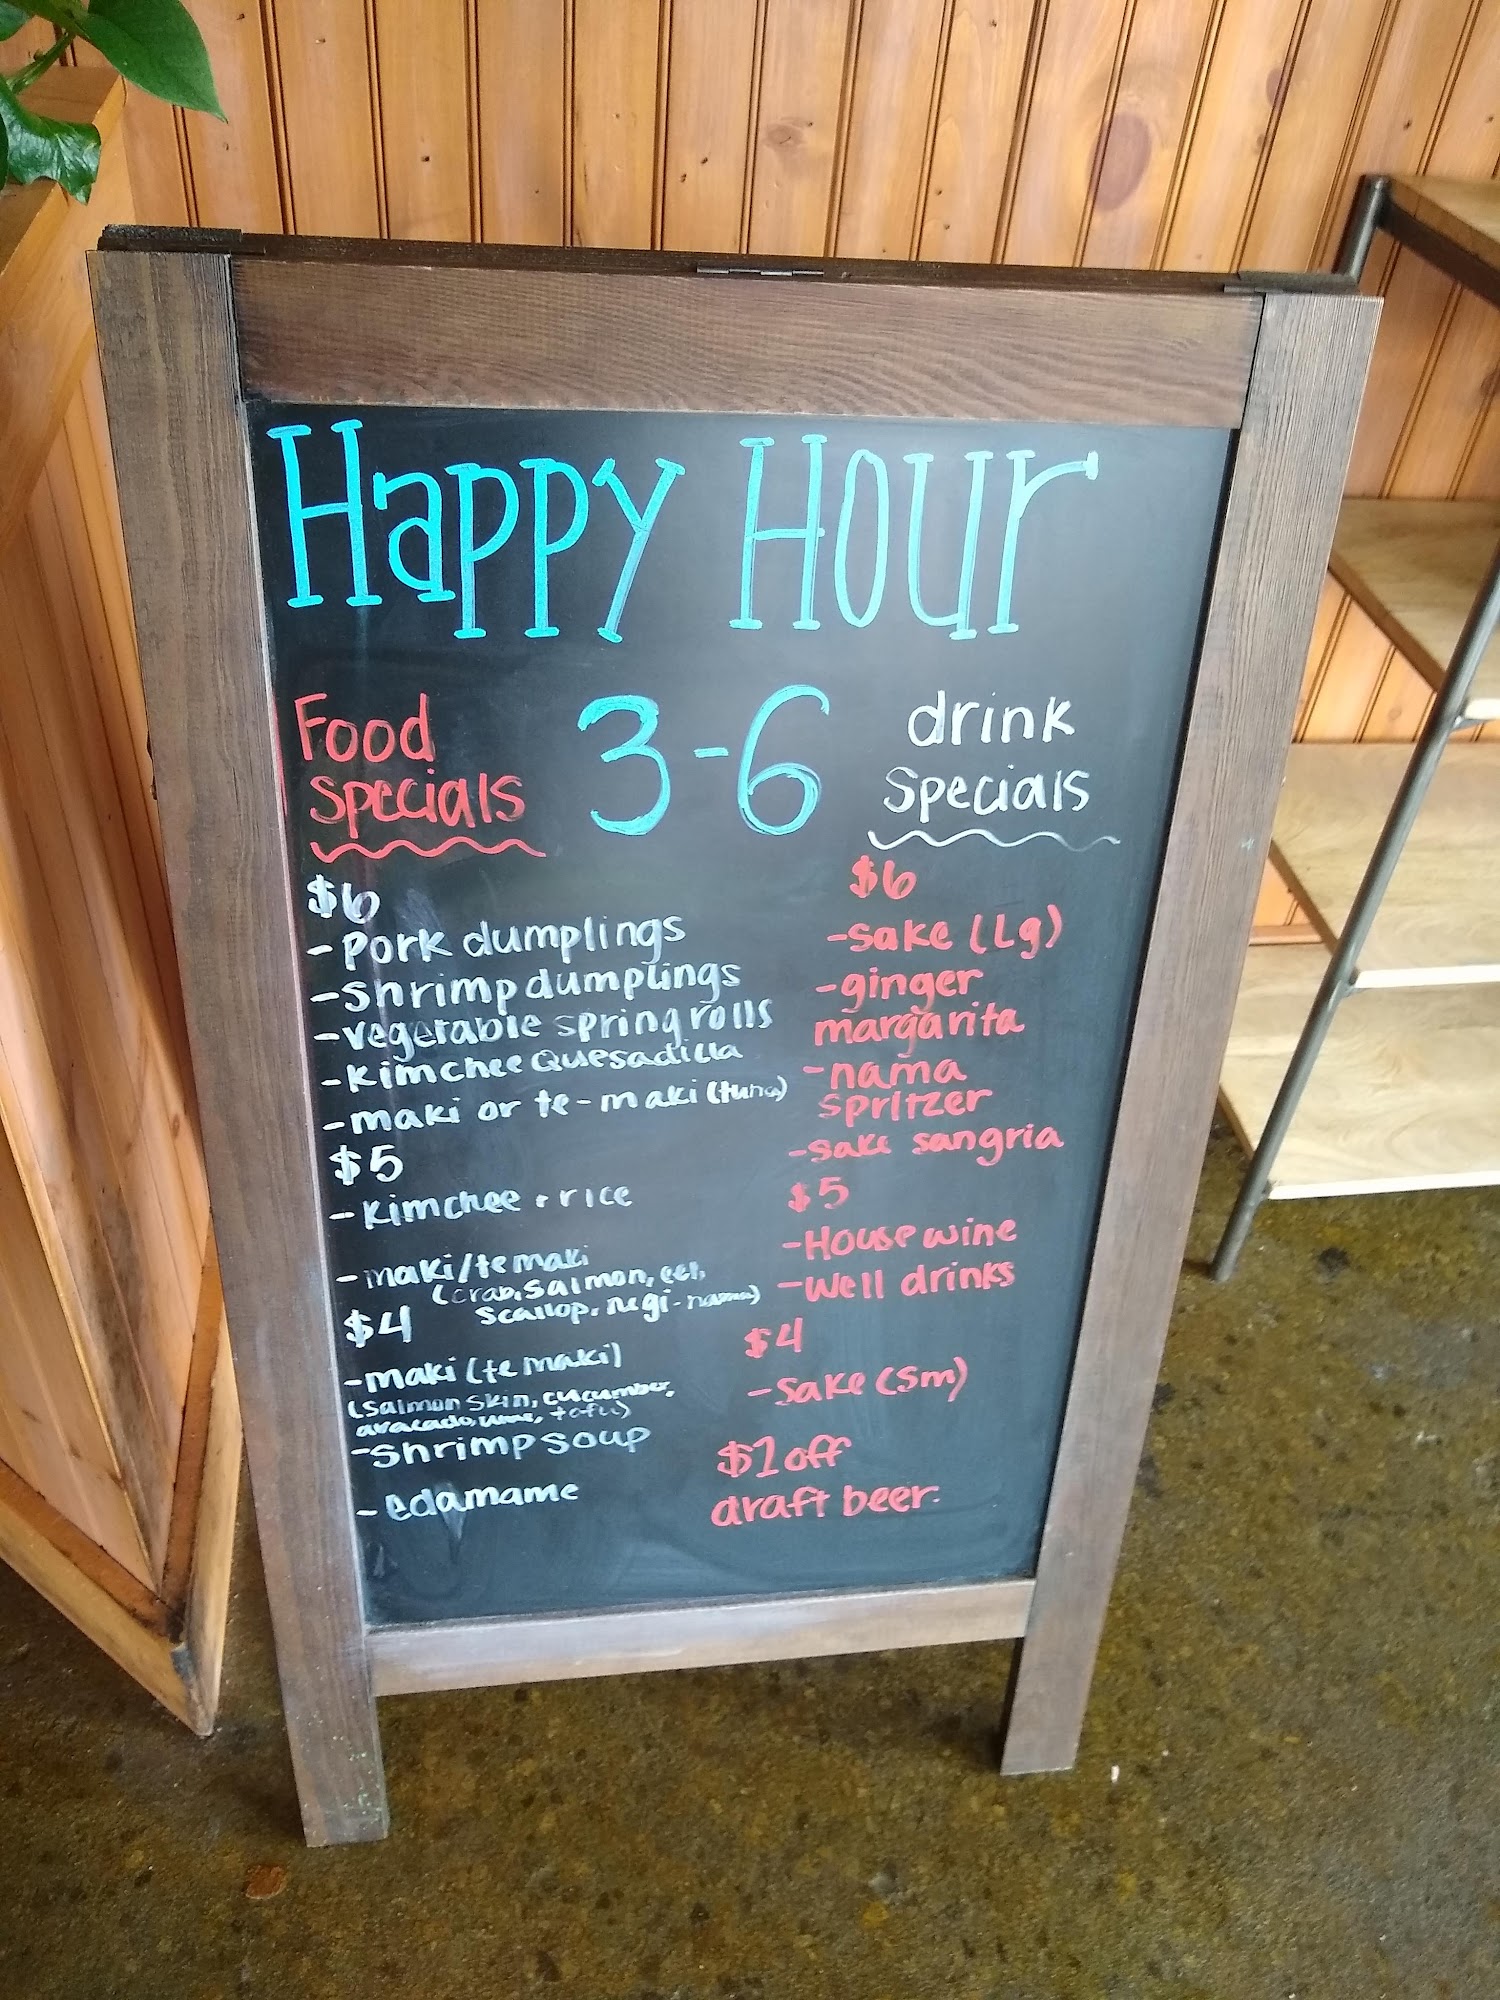 Happy Hour
3-6
Food
Specials
$6
-Pork dumplings
-Shrimp dumplings
-vegetable spring rolls
-Kimchee Quesadilla
-maki or te-maki (tuna)
$5
-Kimchee + rice
-maki/temaki
(crab, salmon, eel,
scallop, negi-hama)
$4
-maki (temaki)
(salmon skin, cucumber,
avacado, ume, tofu)
-Shrimp soup
-edamame
drink
Specials
$6
-sake (Lg)
-ginger
margarita
-nama
spritzer
-sake sangria
$5
-House wine
-Well drinks
$4
-Sake (Sm)
$1 off
draft beer.